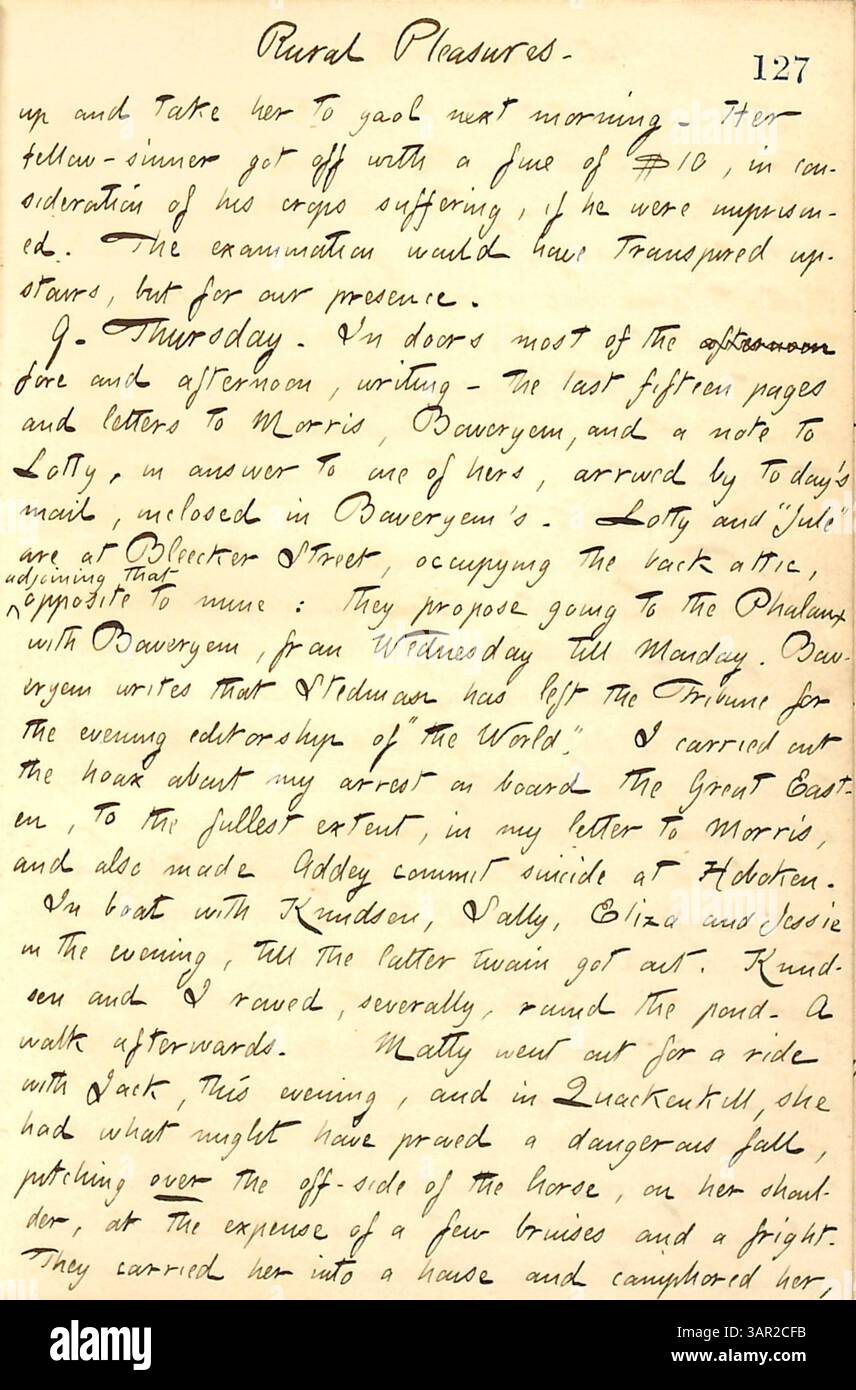 Rural Pleasures.
127
up and take her to gaol next morning. Her
fellow-sinner got off with a fine of $10, in con-
sideration of his crops suffering, if he were imprison-
ed. The examination would have transpired up-
stairs, but for our presence.
9. Thursday. In doors most of the afternoon
fore and afternoon, writing - the last fifteen pages
and letters to Morris, Boweryem, and a note to
Lotty, in answer to one of hers, arrived by to day's
mail, inclosed in Boweryem's. Lotty and "Jule"
are at Bleecker Street, occupying the back attic,
adjoining that
opposite to mine: they propose going to the Phalanx
with Boweryem, from Wednesday till Monday. Bow-
eryem writes that Stedman has left the Tribune for
the evening editorship of "the World". I carried out
the hoax about my arrest on board the Great East-
ern, to the fullest extent, in my letter to Morris,
and also made Addey commit suicide at Hoboken.
In boat with Knudsen, Sally, Eliza and Jessie
in the evening, till the latter twain got out. Knud-
sen and I rowed, severally, round the pond. A
walk afterwards. Matty went out for a ride
with Jack, this evening, and in Quackenkill, she
had what might have proved a dangerous fall,
pitching over the off-side of the horse, on her shoul-
der, at the expense of a few bruises and a fright.
They carried her into a house and camphored her,
alamy
Image ID: 3AR2CFB
www.alamy.com